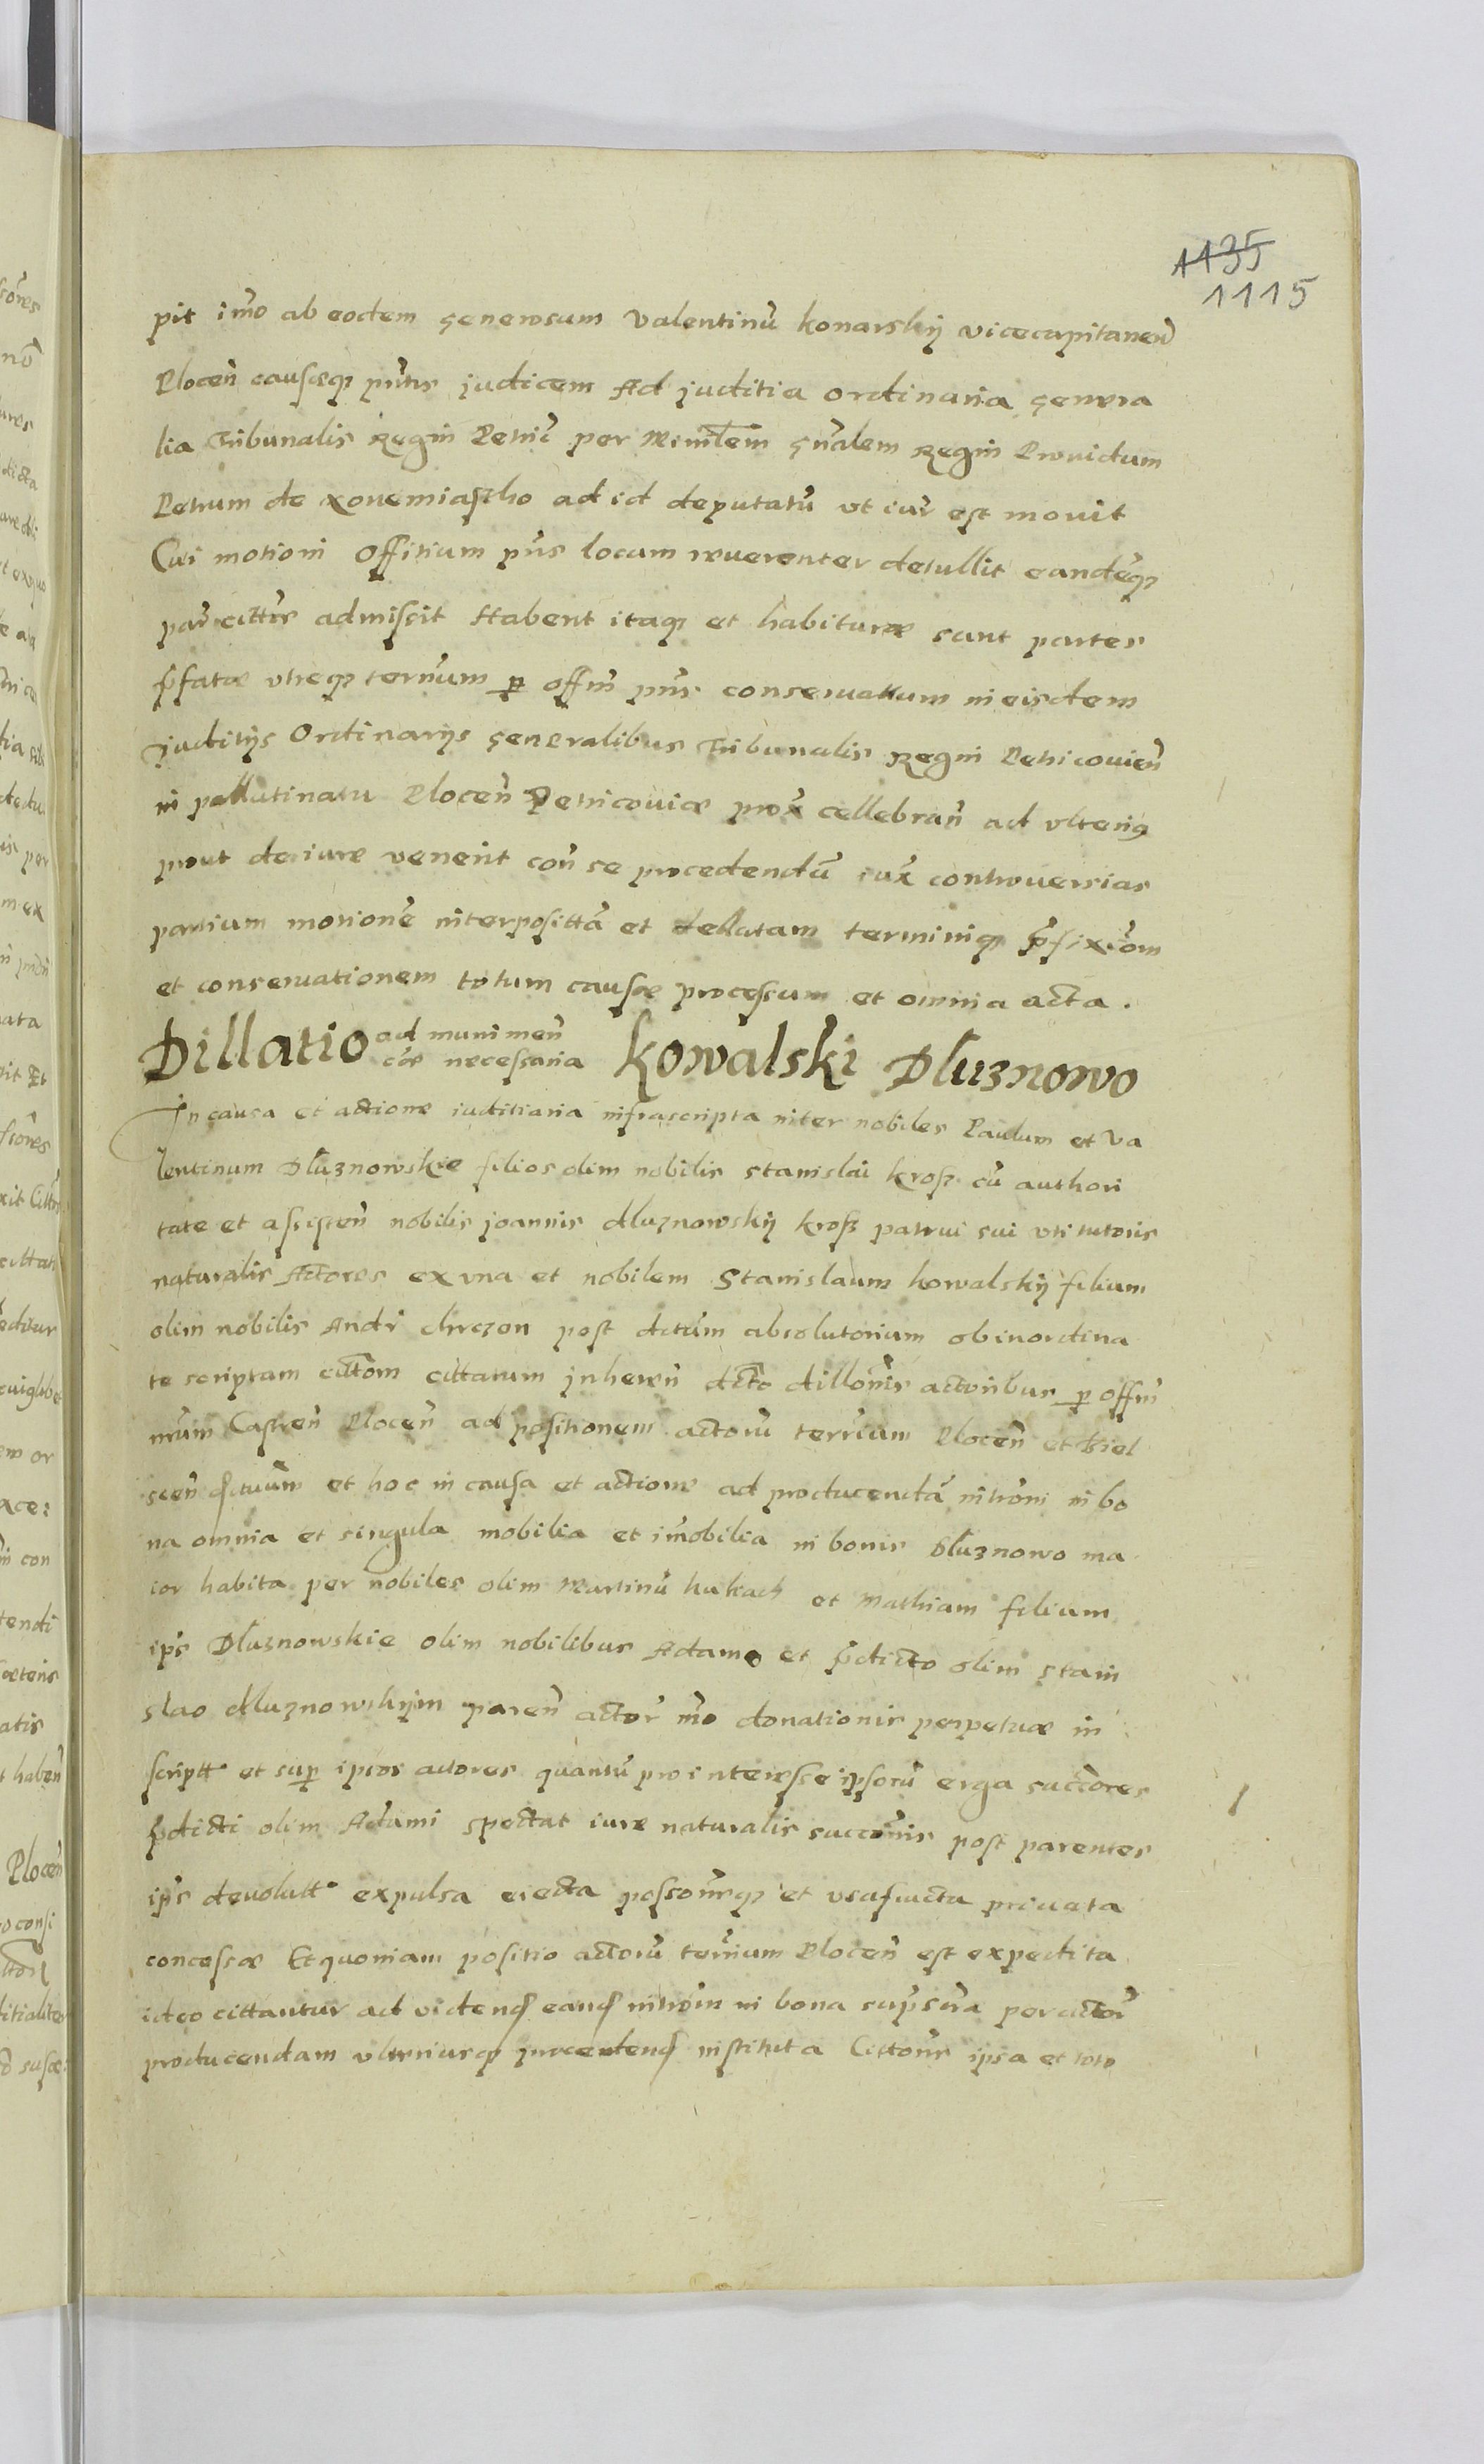 1135
1115
pit im̃o ab eodem generosum Valentinũ konarskij vicecapitaneũ
Plocen̄ causæq3 pn̄tis judicem Ad juditia ordinaria genera
lia Tribunalis Regni Petric̄ per Minr̄lem gn̄alem Regni Prouidum
Petrum de Xovemiastho ad id deputatũ ut iur̄ est mouit
Cui motioni Offitium pn̄s locum reuerenter detullit eandẽq3
par̄ cittr̄is admissit Habent itaq3 et habituræ sunt partes
p̄fatæ vtreq3 termīum p offm̄ pn̄s conseruatum in eisdem
juditijs Ordinarijs generalibus Tribunalis Regni Petricouien̄
in pallatinatu Plocen̄ Petricouiæ prox̄ cellebran̄ ad vlterig
prout de iure venerit con̄ se procedendũ iux̄ controuersias
partium motionẽ interposittã et dellatam terminiq3 p̄fixiōm
et conseruationem totum causæ processum et omnia acta.
Dillatio ad munimen̄ cǣ necessaria Kowalski Dłuznowo
In causa et actione iuditiaria infrascripta inter nobiles Paulum et Va
lentinum Dłuznowskie filios olim nobilis Stanislai krosz cũ authori
tate et assisten̄ nobilis joannis dłuznowskij krosz patrui sui vti tutoris
naturalis Actores ex vna et nobilem Stanislaum kowalskij filium
olim nobilis Andr̄ chrczon post dec̄tum absolutorium ob inordina
te scriptam citt̄om cittatum inheren̄ dec̄to dillōnis actoribus p offm̄
Castren̄ Plocen̄ ad positionem actorũ terr̄ium Plocen̄ et Biel
scen̄ et hoc in causa et actione ad producendã intrōni in bo
na omnia et singula mobilia et im̃obilia in bonis Dłuznowo ma
ior habita per nobiles olim Martinũ et Mathiam filium
ip̄s Dłuznowskie olim nobilibus Adamo et p̄dicto olim Stani
slao dłuznowskijm paren̄ actor̄ m̄o donationis perpetuæ in
scriptt et sup ipsos actores quantũ pro interesse ipsorũ erga succōres
p̄dicti olim Adami spectat iure naturalis succōnis post parentes
ip̄s deuolutt expulsa eiecta possōneq3 et vsufructu priuata
concessæ Et quoniam positio actorũ terr̄ium Plocen̄ est expedita
ideo cittantur ad videnđ eanđ intrōm in bona sup̄sc̄ra per actor̄
producendam vlteriusq3 procedenđ instituta Cittōnis ipsa et toto